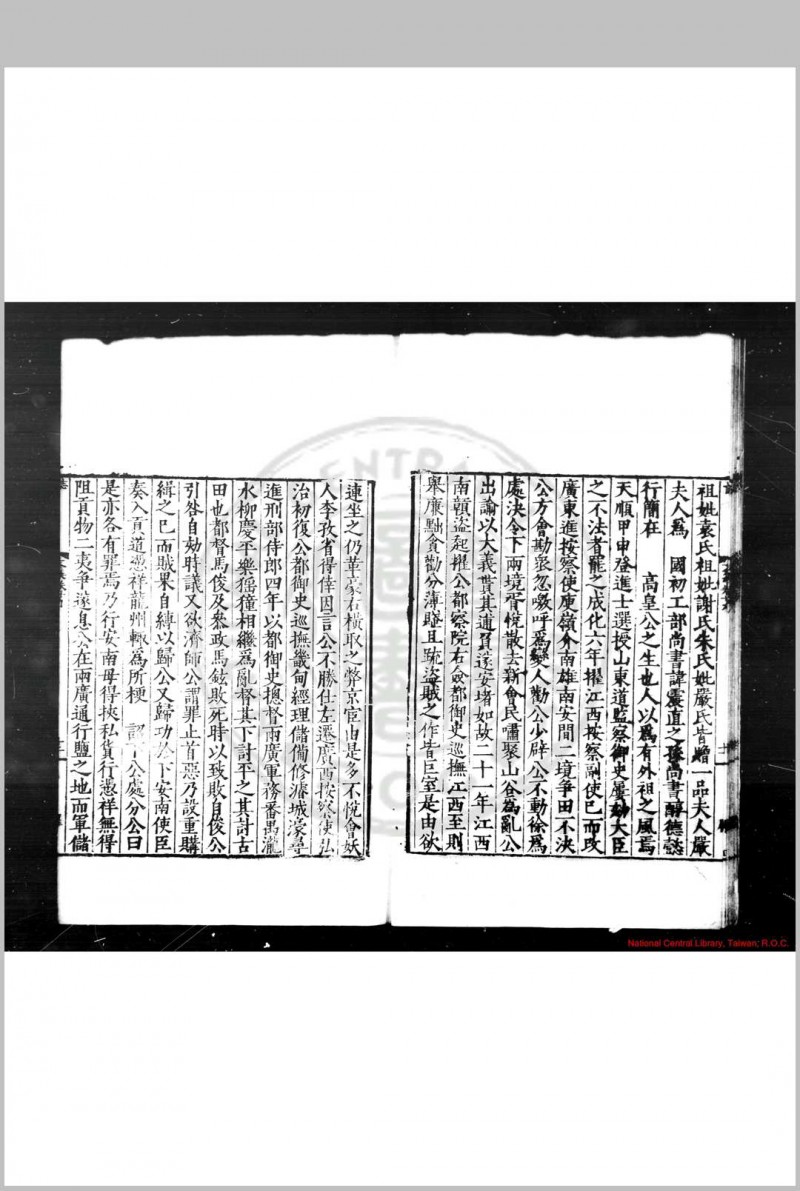 祖妣袁氏祖妣謝氏朱氏妣嚴氏皆贈一品夫人嚴
夫人爲 國初工部尚書諱震直之孫尚書醇德懿
行簡在 高皇公之生也人以爲有外祖之風焉
天順甲申登進士選授山東道監察御史屢劾大臣
之不法者罷之成化六年擢江西按察副使已而改
廣東進按察使庾嶺介南雄南安間二境爭田不決
公方會勘衆忽噉呼爲變人勸公少辟公不動徐爲
處決令下兩境胥悅散去新會民嘯聚山谷為亂公
出諭以大義貰其逋負遂安堵如故二十一年江西
南贛盜起擢公都察院右僉都御史巡撫江西至則
舉廉黜貪勸分薄賦且疏盜賊之作皆巨室是由欲
連坐之仍革豪右橫取之弊京宦由是多不悅會妖
人李孜省得倖因言公不勝仕左遷廣西按察使弘
治初復公都御史巡撫畿甸經理儲偹修濬城濠尋
進刑部侍郎四年以都御史總督兩廣軍務番禺瀧
水柳慶平樂猺獞相繼爲亂督其下討平之其討古
田也都督馬俊及叅政馬鉉敗死時以致敗自俊公
引咎自劾時議又欲濟師公謂罪止首惡乃設重購
緝之已而賊果自縛以歸公又歸功於下安南使臣
奏入貢道憑祥龍州輙為所梗 詔下公處分公曰
是亦各有罪焉乃行安南毋得挾私貨行憑祥無得
阻貢物二夷爭遂息公在兩廣通行鹽之地而軍儲
National Central Library, Taiwan; R.O.C.